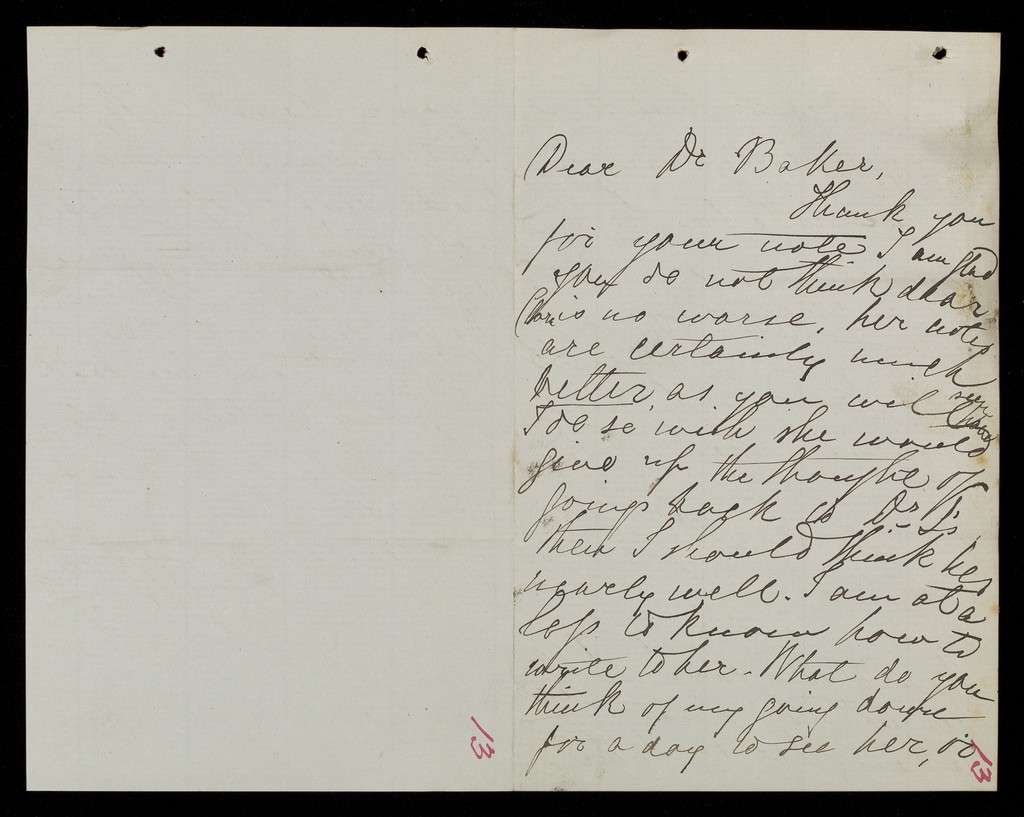 Dear Dr Baker,
Thank you
for your note I am glad
you do not think dear
Cora is no worse, her notes
are certainly much
better, as you will see
I do so wish she would
give up the thought of
going back to Dr
then I should think her
nearly well. I am at a
loss to know how to
write to her. What do you
think of my going down
for a day to see her,
13
13